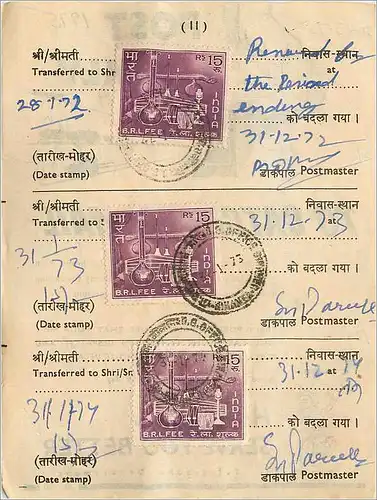 ( 11 )
श्री/श्रीमती
निवास-स्थान
Transferred to Shr
at
Renewed for
the Period
ending
28-1-72
31-12-72
को बदला गया ।
भारत
Rs 15 रु
INDIA
B.R.L.FEE रे.ला.शुल्क
(तारीख-मोहर)
(Date stamp)
डाकपाल Postmaster
श्री/श्रीमती
निवास-स्थान
Transferred to S
at
31-12-73
भारत
Rs 15 रु
INDIA
B.R.L.FEE रे.ला.शुल्क
31/1/73
1.73
को बदला गया ।
(तारीख-मोहर)
(Date stamp)
डाकपाल Postmaster
श्री/श्रीमती
निवास-स्थान
Transferred to Shri/Sr
at
31.12
15 रु
INDIA
B.R.L.FEE रे.ला.शुल्क
31/1/74
को बदला गया ।
(तारीख-मोहर)
(Date stamp)
डाकपाल Postmaster